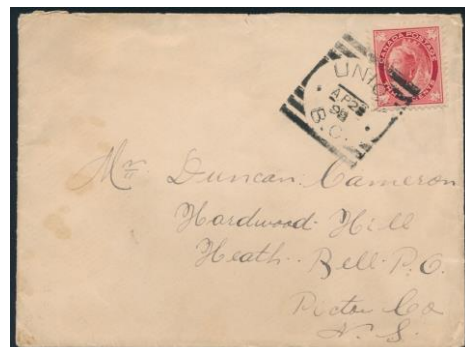 CANADA POSTAGE
UNION
AP 2
98
B.C.
Mr Duncan Cameron
Hardwood Hill
Heath Bell P.O.
Pictou Co
N.S.